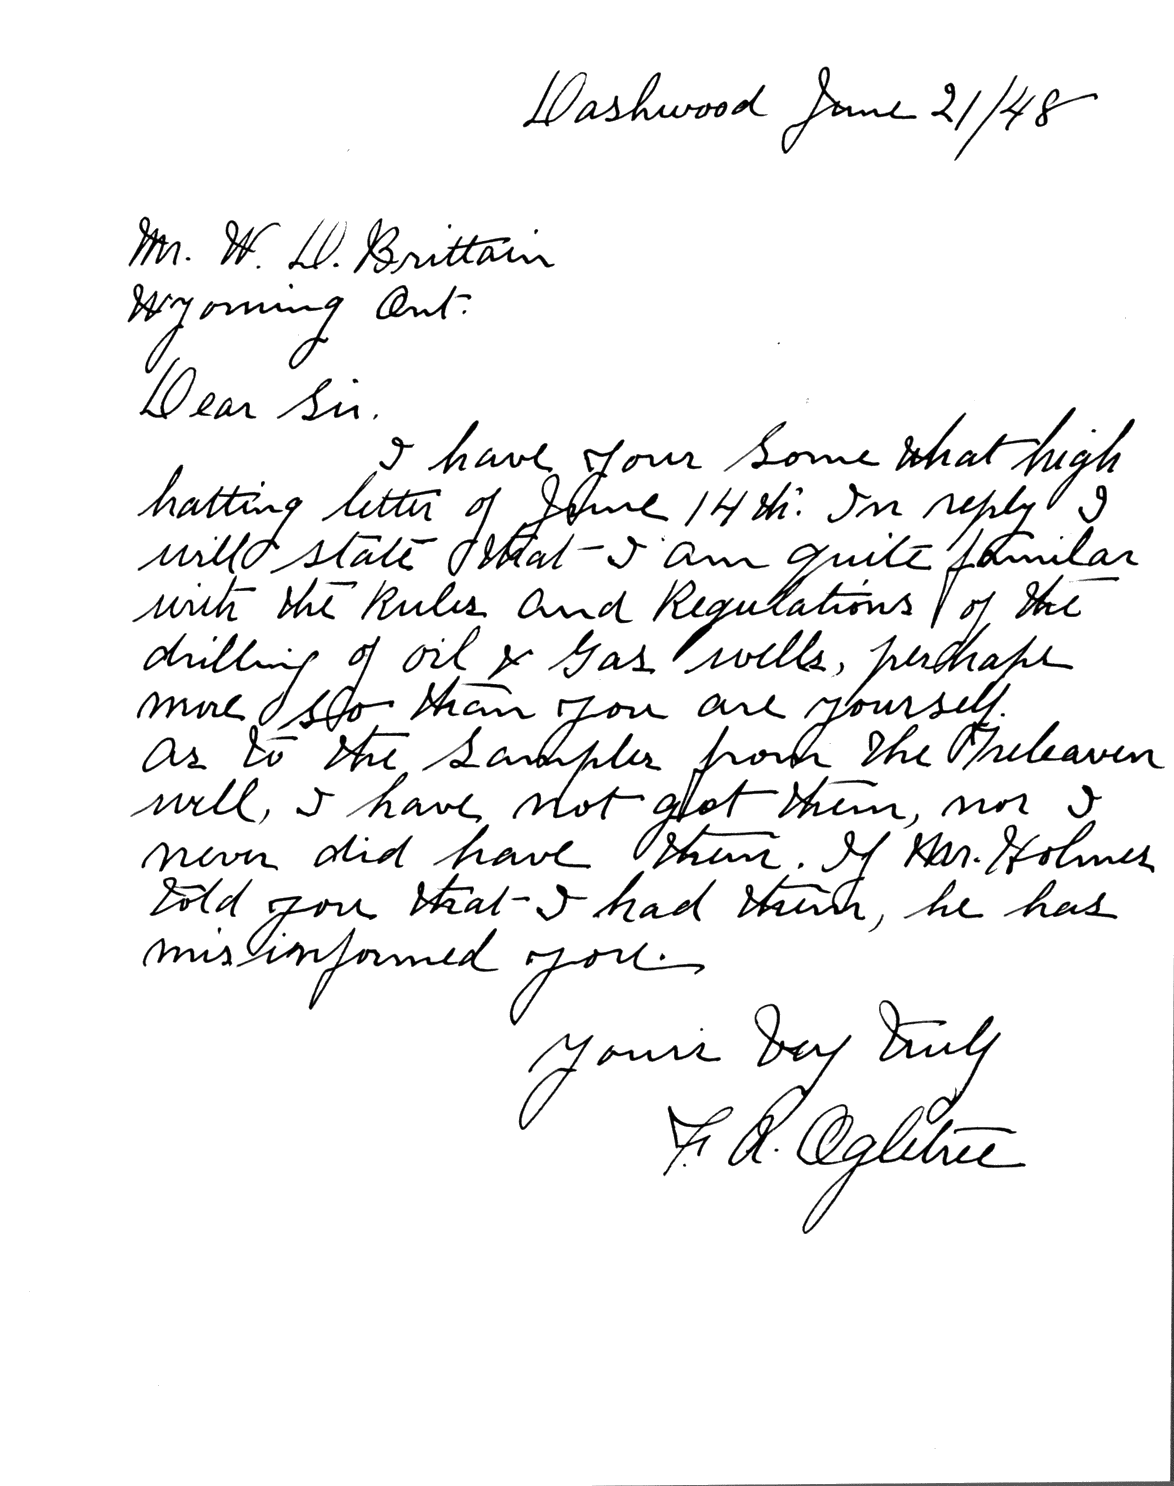 Dashwood June 21/48
Mr. W. D. Brittain
Wyoming Ont.
Dear Sir.
I have your some what high
hatting letter of June 14th. In reply I
will state that I am quite familar
with the Rules and Regulations of the
drilling of oil & Gas wells, perhaps
more so than you are yourself.
As to the samples from the Treleaven
well, I have not got them, nor I
never did have them. If Mr. Holmes
told you that I had them, he has
misinformed you.
Yours Very Truly
F. R. Ogletree